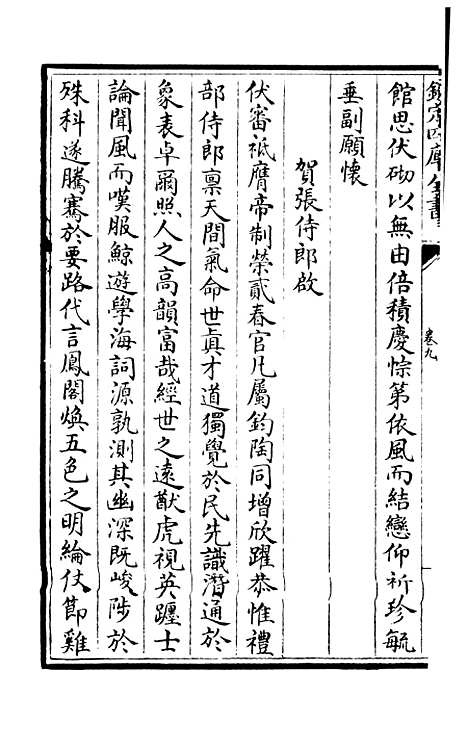 欽定四庫全書
卷九
館思伏砌以無由倍積慶悰第依風而結戀仰祈珍毓
垂副願懷
賀張侍郎啟
伏審祗膺帝制榮貳春官凡屬鈞陶同增欣躍恭惟禮
部侍郎稟天間氣命世真才道獨覺於民先識潛通於
象表卓爾照人之高韻富哉經世之遠猷虎視英躔士
論聞風而嘆服鯨遊學海詞源孰測其幽深既峻陟於
殊科遂騰騫於要路代言鳳閣煥五色之明綸仗節雞